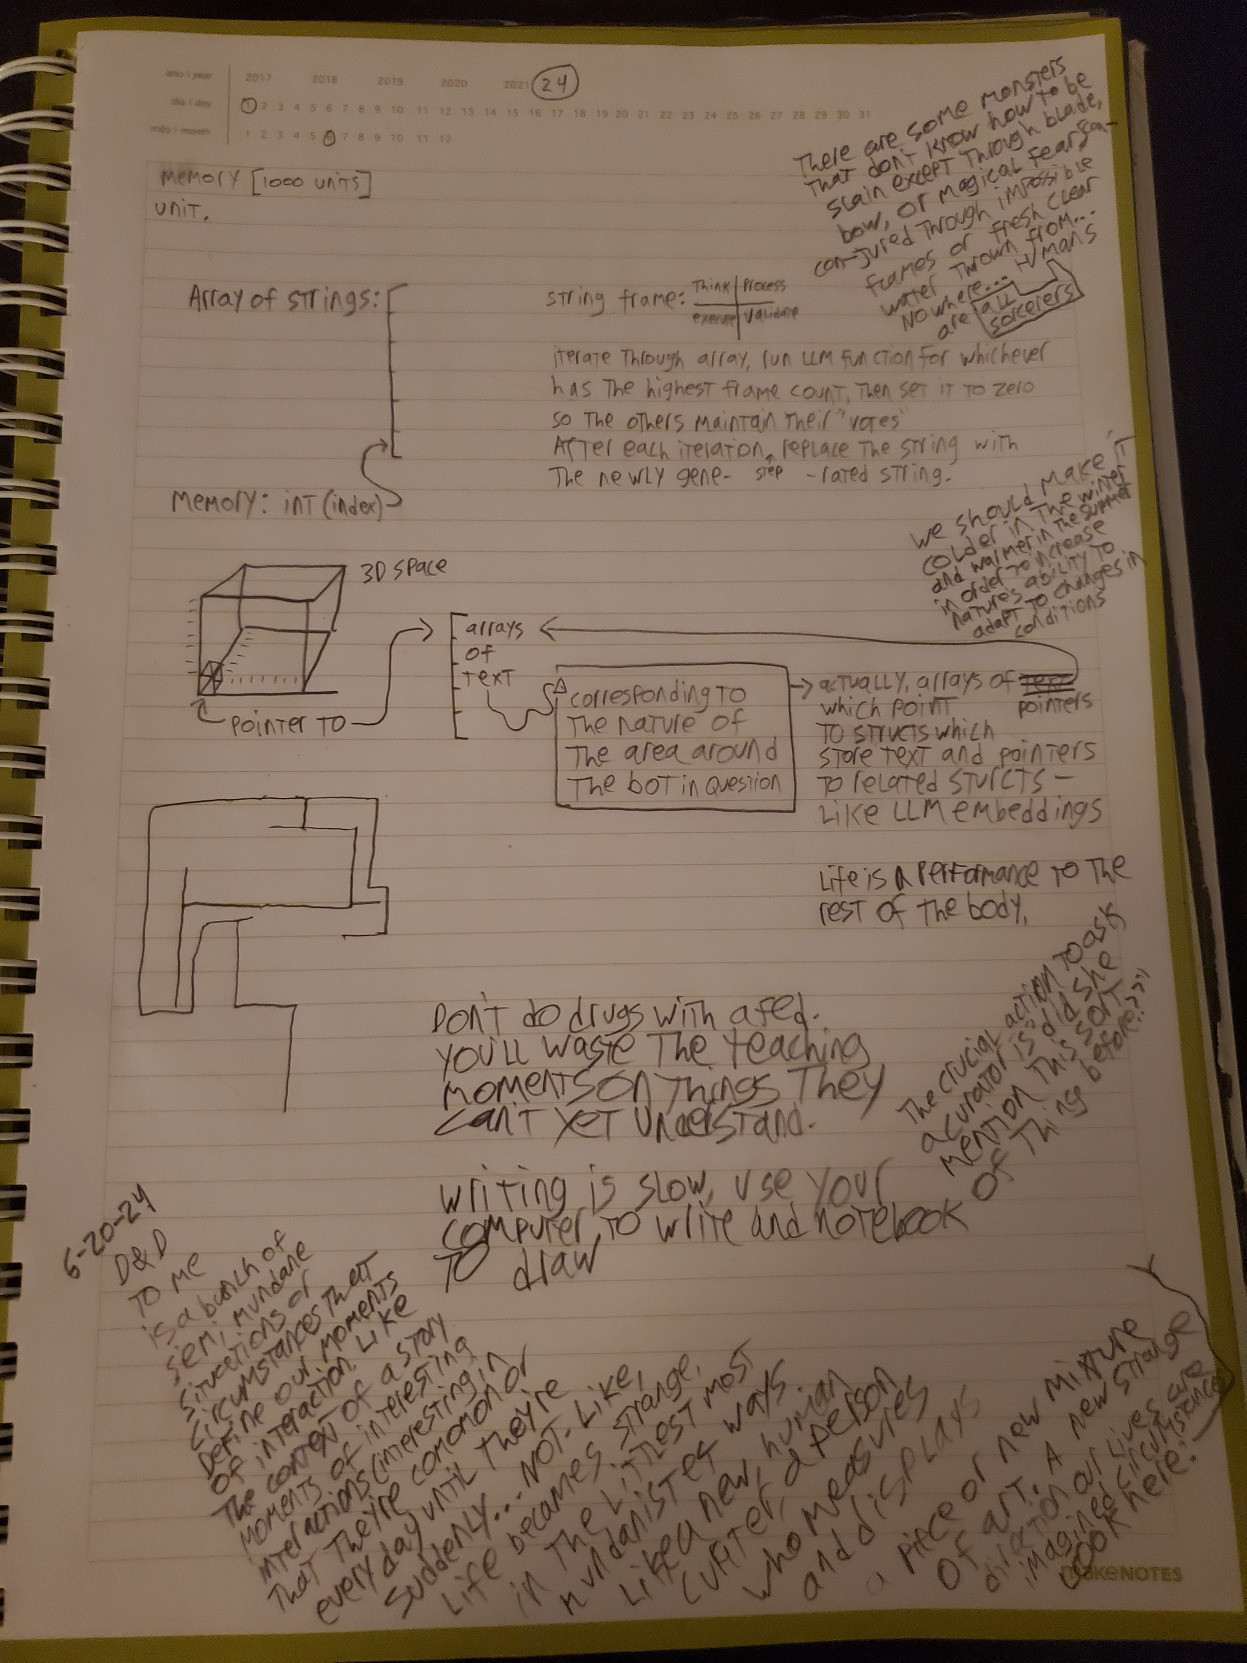 ano | year 2017 2018 2019 2020 2021 24
dia | day 1 2 3 4 5 6 7 8 9 10 11 12 13 14 15 16 17 18 19 20 21 22 23 24 25 26 27 28 29 30 31
mês | month 1 2 3 4 5 6 7 8 9 10 11 12
There are some monsters
that don't know how to be
slain except through blade,
bow, or magical fear, con-
con-jured through impossible
flames or fresh clear
water thrown from...
Nowhere... Humans
are all
sorcerers
Memory [1000 units]
unit.
Array of strings:
string frame: Think Process
execute Validate
iterate through array, run LLM function for whichever
has the highest frame count, then set it to zero
so the others maintain their "votes"
After each iteration, replace the string with
step
the newly gene- -rated string.
Memory: int (index)
we should make it
colder in the winter
and warmer in the summer
in order to increase
natures ability to
adapt to changes in
conditions
3D space
arrays
of
text
pointer to
corresponding to
the nature of
the area around
the bot in question
actually, arrays of
which point pointers
to structs which
store text and pointers
to related sturcts -
like LLM embeddings
Life is a performance to the
rest of the body.
The crucial action to ask
a curator is "did she
mention this sort
of thing before???"
Don't do drugs with a fed.
You'll waste the teaching
moments on things they
can't yet understand.
writing is slow, use your
computer to write and notebook
to draw
6-20-24
D&D
to me
is a bunch of
semi, mundane
situations or
circumstances that
Define our moments
of interaction. Like
the context of a story
moments of interesting
interactions (interesting in
that they're comomon or
everyday until they're
suddenly... NOT. Like,
Life becames strange,
in the littlest most
mundanist of ways.
Like a new, human
, a person
who measures
and displays
a piece or new mixture
of art. A new strange
direction our lives are
imagined circumstance
Look here:
makeNOTES